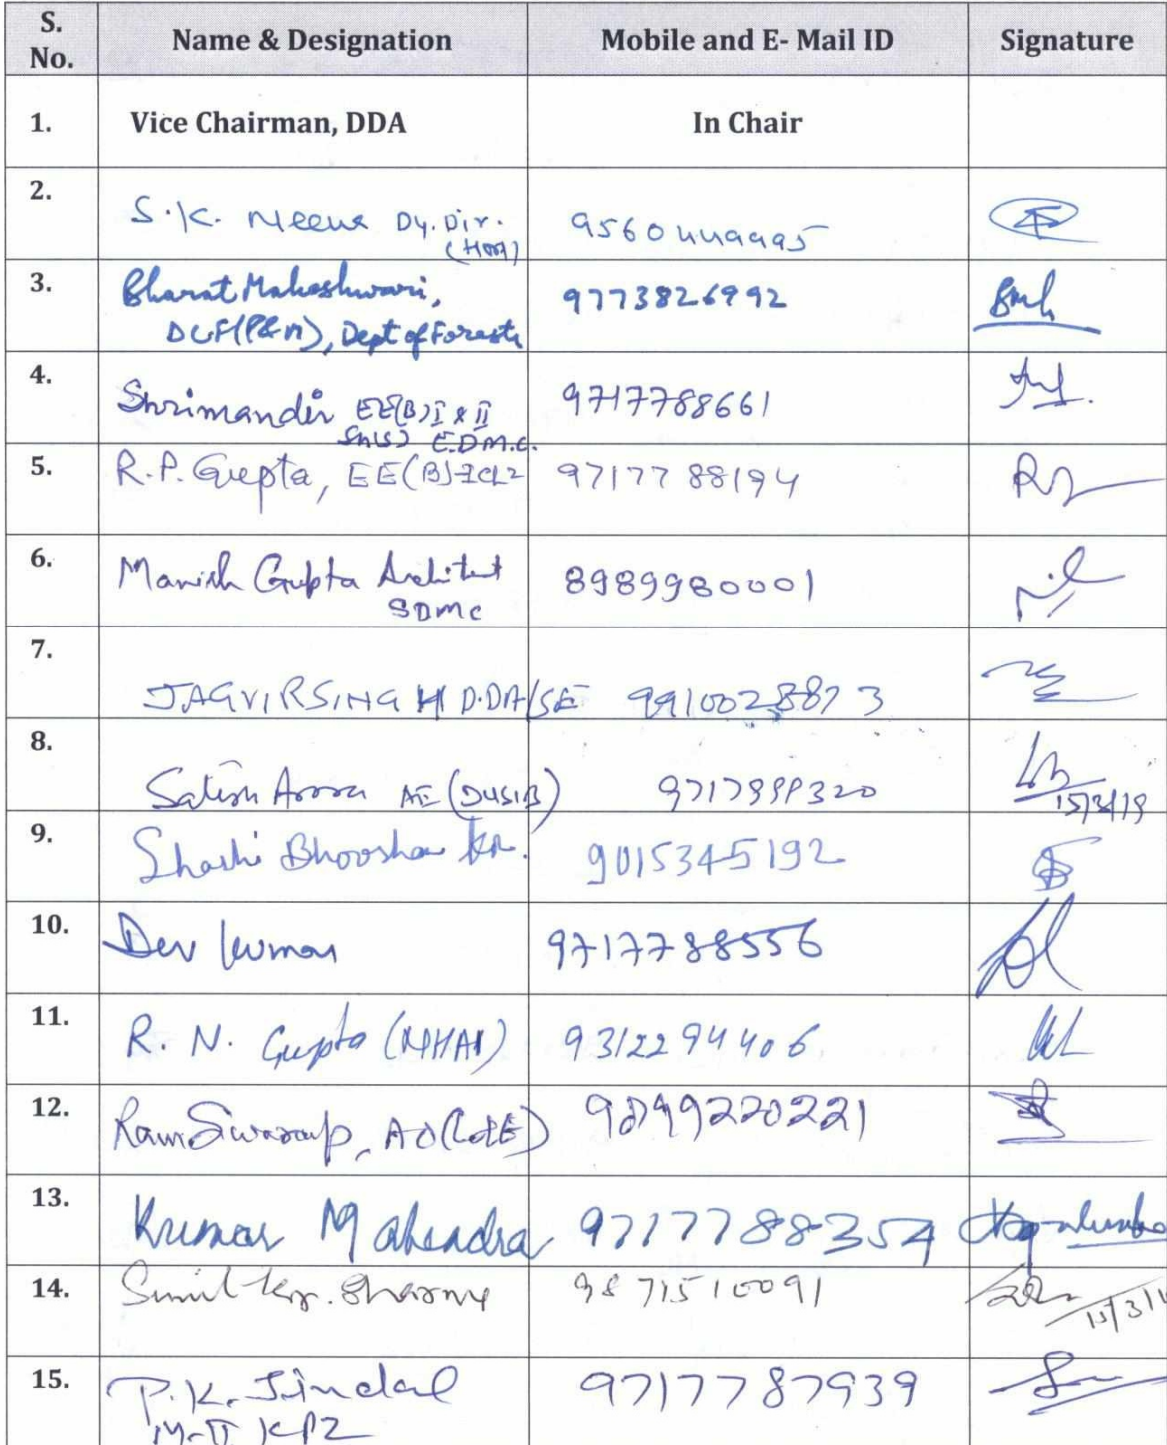 S. No. Name & Designation Mobile and E- Mail ID Signature
1. Vice Chairman, DDA In Chair
2. S.K. Meena Dy. Dir. 9560444995
3. Bharat Maheshwari, 9773826992
Dept of Forests
4. Shrimandir EE(B)I & II 9717788661
E.D.M.C.
5. R.P. Gupta, EE(B) 9717788194
6. Manish Gupta Architect 8989980001
SDMC
7. JAGVIR SINGH D.DA/SE
8. Satish Arora AE (DUSIB)
15/3/19
9. Shashi Bhooshan Kr. 9015345192
10. Dev Kumar 9717788556
11. R. N. Gupta (NHAI) 9312294406
12. Ram Swaroop, 9899220221
13. Kumar Mahendra 9717788354
14. Sunil Kr. Sharma 9871510091
15/3/1
15. P.K. Jindal 9717787939